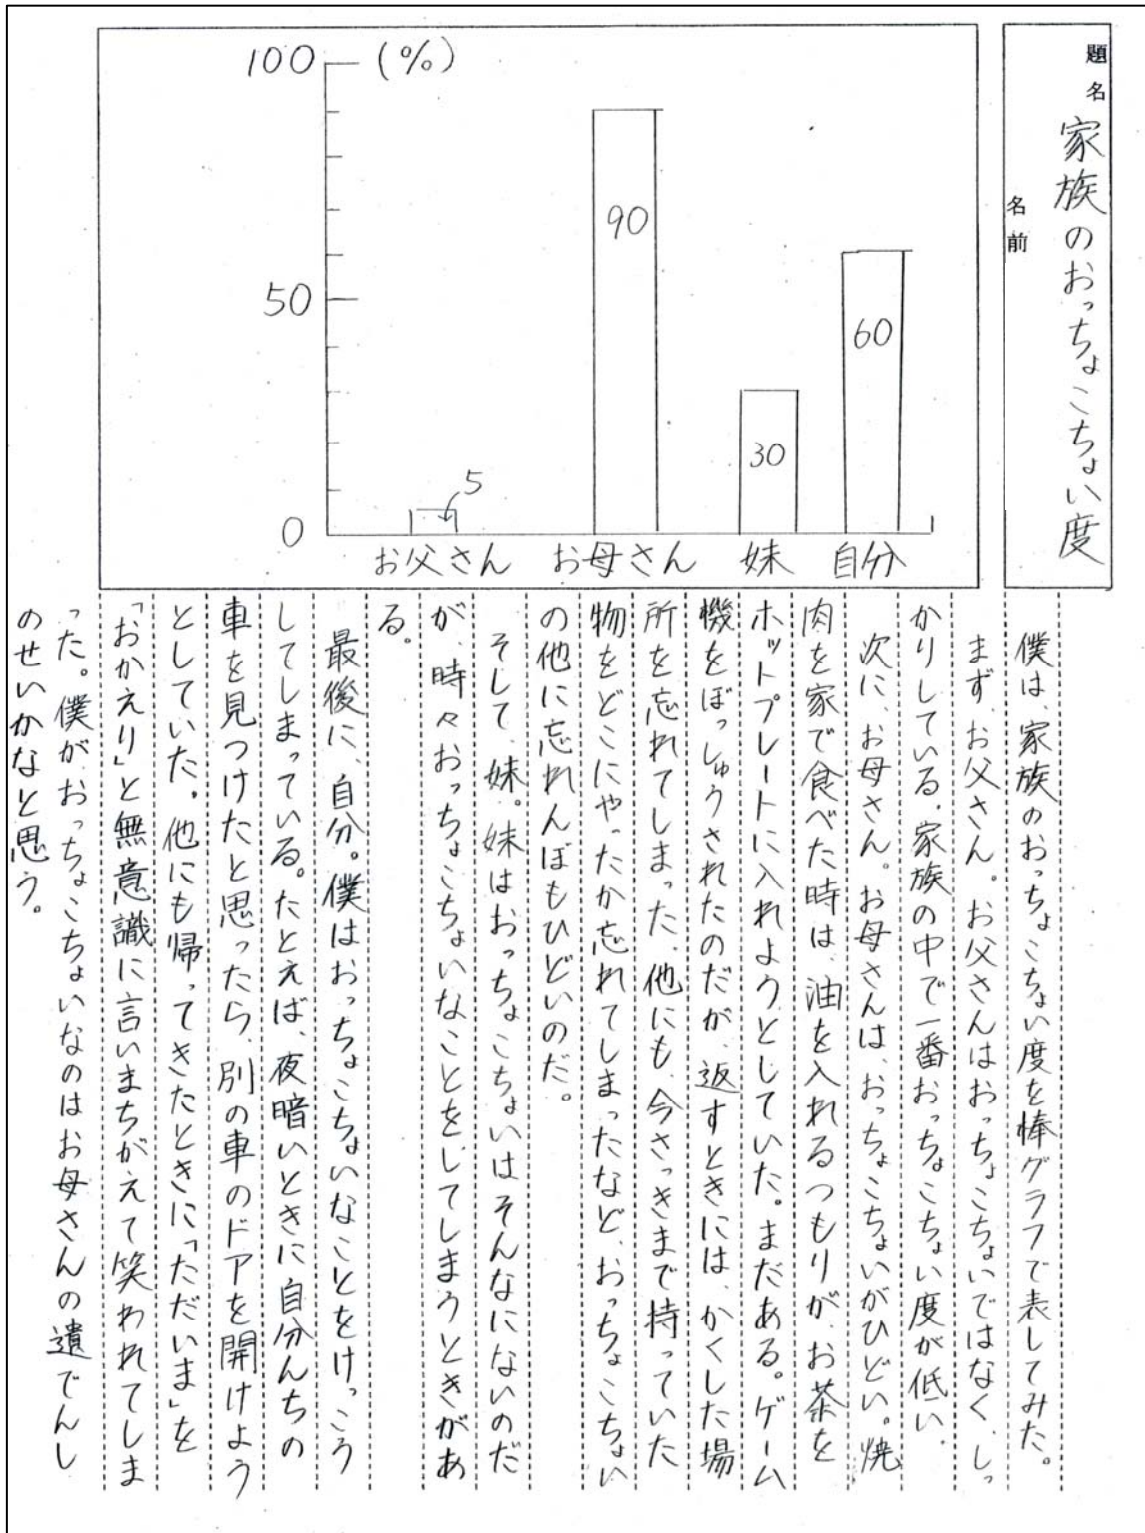 題名 家族のおっちょこちょい度
名前
100 (%)
50
0
5
90
30
60
お父さん お母さん 妹 自分
僕は、家族のおっちょこちょい度を棒グラフで表してみた。
まず、お父さん。お父さんはおっちょこちょいではなく、しっ
かりしている。家族の中で一番おっちょこちょい度が低い。
次に、お母さん。お母さんは、おっちょこちょいがひどい。焼
肉を家で食べた時は、油を入れるつもりが、お茶を
ホットプレートに入れようとしていた。まだある。ゲーム
機をぼっしゅうされたのだが、返すときには、かくした場
所を忘れてしまった。他にも、今さっきまで持っていた
物をどこにやったか忘れてしまったなど、おっちょこちょい
の他に忘れんぼもひどいのだ。
そして、妹。妹はおっちょこちょいはそんなにないのだ
が、時々おっちょこちょいなことをしてしまうときがあ
る。
最後に、自分。僕はおっちょこちょいなことをけっこう
してしまっている。たとえば、夜暗いときに自分んちの
車を見つけたと思ったら、別の車のドアを開けよう
としていた。他にも帰ってきたときに「ただいま」を
「おかえり」と無意識に言いまちがえて笑われてしま
った。僕がおっちょこちょいなのはお母さんの遺でんし
のせいかなと思う。